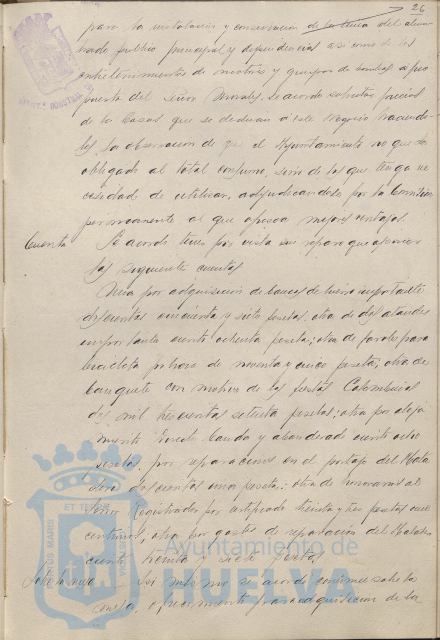 26
para la instalación y conservación de la linea del alum
brado publico principal y dependencias asi como de los
entretenimientos de motores y grupos de bombas a pro
puesta del Señor Morales, se acordo solicitar precios
de la Casas que se dedican a este negocio haciendo
les la observacion de que el Ayuntamiento no queda
obligado al total consumo, sino de los que tenga ne
cesidad de utilizar, adjudicandolo por la Comision
permanente al que ofrezca mejores ventajas.
Cuentas Se acordo tener por vista sin reparo que oponer
las siguientes cuentas
Una por adquisicion de bancos de hierro importante
doscientas cincuenta y siete pesetas, otra de
importante ciento ochenta pesetas; otra de faroles para
bicicleta de noventa y cinco pesetas; otra de
banquete con motivo de las fiestas Colombinas
dos mil trescientas setenta pesetas; otra por aloja
miento banda y abanderado ciento ocho
pesetas, por reparaciones en el del Mata
dero doscientas una pesetas; otra de honorarios al
Señor Registrador por certificado treinta y tres pesetas once
centimos, otra por gastos de reparacion del Matadero
ciento treinta y siete pesetas,
Asi mismo se acordo conforme sobre la
para adquisicion de la
ET TERRÆ
PORTUS MARIS
Ayuntamiento de
HUELVA